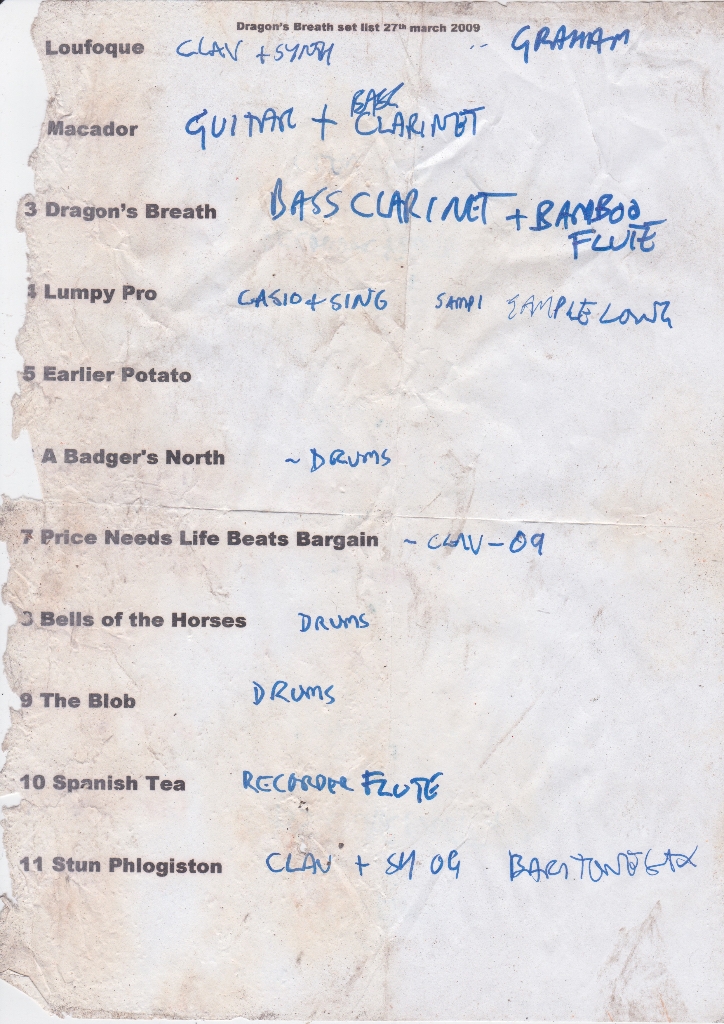 Dragon's Breath set list 27th march 2009
Loufoque CLAV + SYNTH -- GRAHAM
Macador GUITAR + BASS CLARINET
3 Dragon's Breath BASS CLARINET + BAMBOO
FLUTE
4 Lumpy Pro CASIO + SING SAMPL SAMPLE LONG
5 Earlier Potato
A Badger's North ~ DRUMS
7 Price Needs Life Beats Bargain ~ CLAV - 09
8 Bells of the Horses DRUMS
9 The Blob DRUMS
10 Spanish Tea RECORDER FLUTE
11 Stun Phlogiston CLAV + SY 09 BARITONE SAX